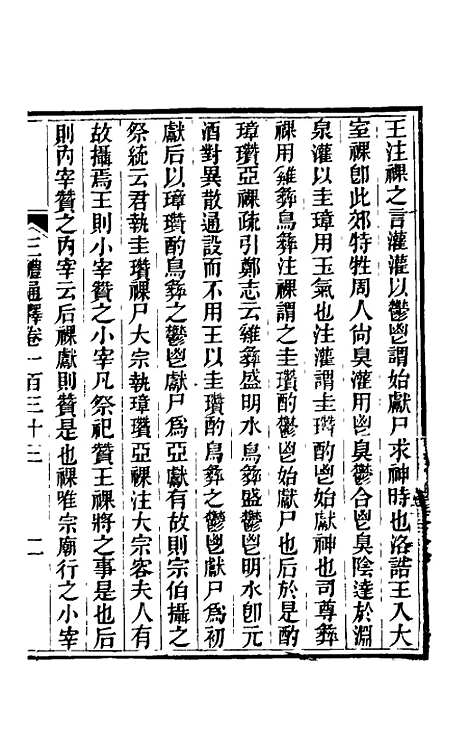 王注祼之言灌灌以鬱鬯謂始獻尸求神時也洛誥王入大
室祼卽此郊特牲周人尙臭灌用鬯臭鬱合鬯臭陰達於淵
泉灌以圭璋用玉氣也注灌謂圭瓚酌鬯始獻神也司尊彝
祼用雞彝鳥彝注祼謂之圭瓚酌鬱鬯始獻尸也后於是酌
璋瓚亞祼疏引鄭志云雞彝盛明水鳥彝盛鬱鬯明水卽元
酒對異散通設而不用王以圭瓚酌鳥彝之鬱鬯獻尸爲初
獻后以璋瓚酌鳥彝之鬱鬯獻尸爲亞獻有故則宗伯攝之
祭統云君執圭瓚祼尸大宗執璋瓚亞祼注大宗容夫人有
故攝焉王則小宰贊之小宰凡祭祀贊王祼將之事是也后
則內宰贊之內宰云后祼獻則贊是也祼唯宗廟行之小宰
三禮通釋卷一百三十三 二